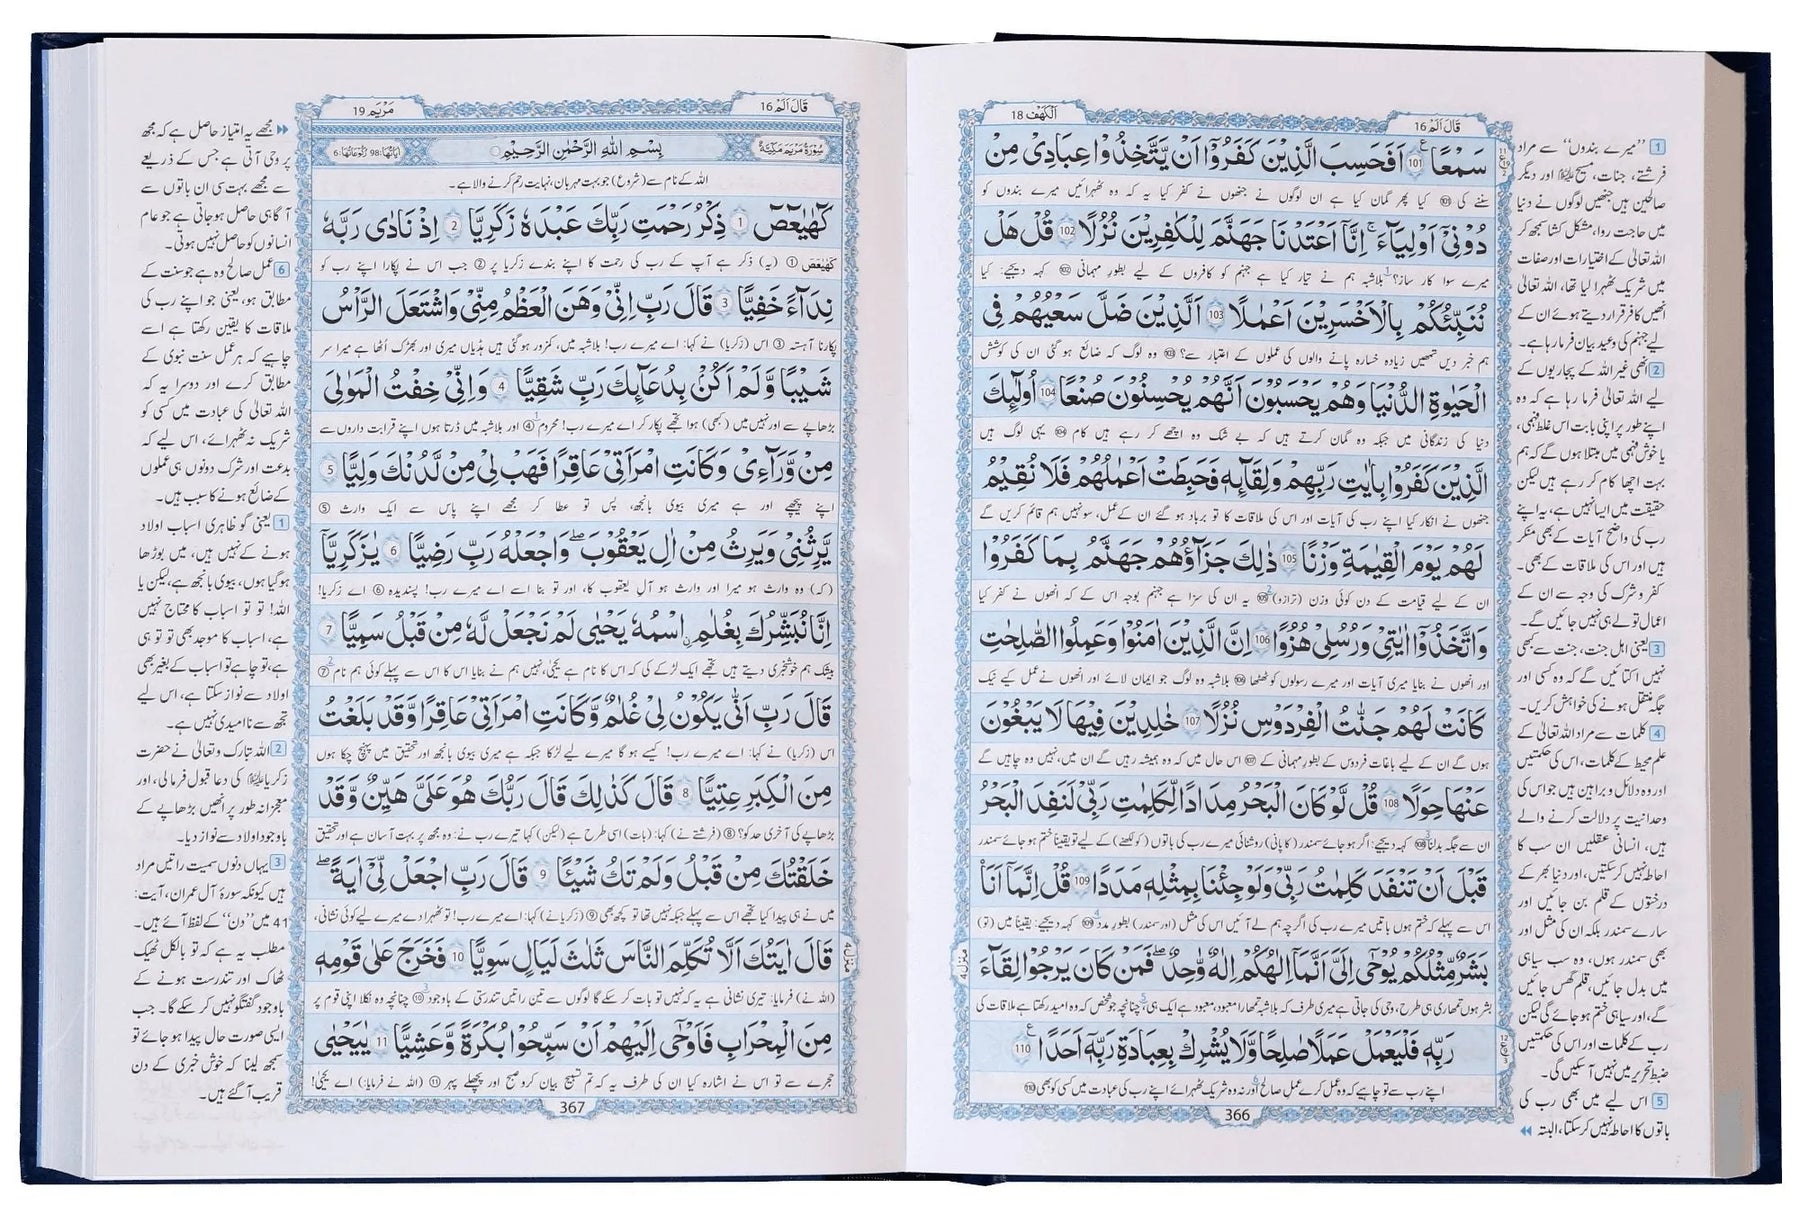 اَلْكَهْف 18
قَالَ اَلَمْ 16
سَمْعًا 101 اَفَحَسِبَ الَّذِيْنَ كَفَرُوْٓا اَنْ يَّتَّخِذُوْا عِبَادِيْ مِنْ
سننے کی 101 کیا پھر گمان کیا ہے ان لوگوں نے جنھوں نے کفر کیا یہ کہ وہ ٹھہرائیں میرے بندوں کو
دُوْنِيْٓ اَوْلِيَآءَ ۚ اِنَّآ اَعْتَدْنَا جَهَنَّمَ لِلْكٰفِرِيْنَ نُزُلًا 102 قُلْ هَلْ
میرے سوا کار ساز؟ بلاشبہ ہم نے تیار کیا ہے جہنم کو کافروں کے لیے بطور مہمانی 102 کہہ دیجیے: کیا
نُنَبِّئُكُمْ بِالْاَخْسَرِيْنَ اَعْمٰلًا 103 اَلَّذِيْنَ ضَلَّ سَعْيُهُمْ فِي
ہم خبر دیں تمھیں زیادہ خسارہ پانے والوں کی عملوں کے اعتبار سے؟ 103 وہ لوگ کہ ضائع ہو گئی ان کی کوشش
الْحَيٰوةِ الدُّنْيَا وَهُمْ يَحْسَبُوْنَ اَنَّهُمْ يُحْسِنُوْنَ صُنْعًا 104 اُولٰٓئِكَ
دنیا کی زندگانی میں جبکہ وہ گمان کرتے ہیں کہ بے شک وہ اچھے کر رہے ہیں کام 104 یہی لوگ ہیں
الَّذِيْنَ كَفَرُوْا بِاٰيٰتِ رَبِّهِمْ وَلِقَآئِهٖ فَحَبِطَتْ اَعْمٰلُهُمْ فَلَا نُقِيْمُ
جنھوں نے انکار کیا اپنے رب کی آیات اور اس کی ملاقات کا تو برباد ہو گئے ان کے عمل، سو نہیں ہم قائم کریں گے
لَهُمْ يَوْمَ الْقِيٰمَةِ وَزْنًا 105 ذٰلِكَ جَزَآؤُهُمْ جَهَنَّمُ بِمَا كَفَرُوْا
ان کے لیے قیامت کے دن کوئی وزن (ترازو) 105 یہ ان کی سزا ہے جہنم بوجہ اس کے کہ انھوں نے کفر کیا
وَاتَّخَذُوْٓا اٰيٰتِيْ وَرُسُلِيْ هُزُوًا 106 اِنَّ الَّذِيْنَ اٰمَنُوْا وَعَمِلُوا الصّٰلِحٰتِ
اور انھوں نے بنایا میری آیات اور میرے رسولوں کو ٹھٹھا 106 بلاشبہ وہ لوگ جو ایمان لائے اور انھوں نے عمل کیے نیک
كَانَتْ لَهُمْ جَنّٰتُ الْفِرْدَوْسِ نُزُلًا 107 خٰلِدِيْنَ فِيْهَا لَا يَبْغُوْنَ
ہوں گے ان کے لیے باغات فردوس کے بطور مہمانی کے 107 اس حال میں کہ وہ ہمیشہ رہیں گے ان میں، نہیں وہ چاہیں گے
عَنْهَا حِوَلًا 108 قُلْ لَّوْ كَانَ الْبَحْرُ مِدَادًا لِّكَلِمٰتِ رَبِّيْ لَنَفِدَ الْبَحْرُ
ان سے جگہ بدلنا 108 کہہ دیجیے: اگر ہو جائے سمندر (کا پانی) روشنائی میرے رب کی باتوں (کو لکھنے) کے لیے تو یقیناً ختم ہو جائے سمندر
قَبْلَ اَنْ تَنْفَدَ كَلِمٰتُ رَبِّيْ وَلَوْ جِئْنَا بِمِثْلِهٖ مَدَدًا 109 قُلْ اِنَّمَآ اَنَا۠
اس سے پہلے کہ ختم ہوں باتیں میرے رب کی اگرچہ ہم لے آئیں اس کی مثل (اور سمندر) بطور مدد 109 کہہ دیجیے: یقیناً میں (تو)
بَشَرٌ مِّثْلُكُمْ يُوْحٰٓى اِلَيَّ اَنَّمَآ اِلٰهُكُمْ اِلٰهٌ وّٰحِدٌ ۖ فَمَنْ كَانَ يَرْجُوْا لِقَآءَ
بشر ہوں تمھاری ہی طرح، وحی کی جاتی ہے میری طرف کہ بلاشبہ تمھارا معبود، معبود ہے ایک ہی؛ چنانچہ جو شخص کہ وہ امید رکھتا ہے ملاقات کی
رَبِّهٖ فَلْيَعْمَلْ عَمَلًا صٰلِحًا وَّلَا يُشْرِكْ بِعِبَادَةِ رَبِّهٖٓ اَحَدًا 110
اپنے رب سے تو چاہیے کہ وہ عمل کرے عمل صالح اور نہ وہ شریک ٹھہرائے اپنے رب کی عبادت میں کسی کو بھی 110
منزل 4
366
1 ”میرے بندوں“ سے مراد
فرشتے، جنات، مسیح اور دیگر
صالحین ہیں جنھیں لوگوں نے دنیا
میں حاجت روا، مشکل کشا سمجھ کر
اللہ تعالیٰ کے اختیارات اور صفات
میں شریک ٹھہرا لیا تھا، اللہ تعالیٰ
انھیں کافر قرار دیتے ہوئے ان کے
لیے جہنم کی وعید بیان فرما رہا ہے۔
2 انھی غیر اللہ کے پجاریوں کے
لیے اللہ تعالیٰ فرما رہا ہے کہ وہ
اپنے طور پر اپنی بابت اس غلط فہمی،
یا خوش فہمی میں مبتلا ہوں گے کہ ہم
بہت اچھا کام کر رہے ہیں لیکن
حقیقت میں ایسا نہیں ہے، یہ اپنے
رب کی واضح آیات کے بھی منکر
ہیں اور اس کی ملاقات کے بھی۔
کفر و شرک کی وجہ سے ان کے
اعمال تولے ہی نہیں جائیں گے۔
3 یعنی اہل جنت، جنت سے کبھی
نہیں اکتائیں گے کہ وہ کسی اور
جگہ منتقل ہونے کی خواہش کریں۔
4 کلمات سے مراد اللہ تعالیٰ کے
علم محیط کے کلمات، اس کی حکمتیں
اور وہ دلائل و براہین ہیں جو اس کی
وحدانیت پر دلالت کرنے والے
ہیں، انسانی عقلیں ان سب کا
احاطہ نہیں کر سکتیں، اور دنیا بھر کے
درختوں کے قلم بن جائیں اور
سارے سمندر بلکہ ان کی مثل اور
بھی سمندر ہوں، وہ سب سیاہی
میں بدل جائیں، قلم گھس جائیں
گے، اور سیاہی ختم ہو جائے گی لیکن
رب کے کلمات اور اس کی حکمتیں
ضبط تحریر میں نہیں آ سکیں گی۔
5 اس لیے میں بھی رب کی
باتوں کا احاطہ نہیں کر سکتا، البتہ
مَرْيَم 19
قَالَ اَلَمْ 16
سُوْرَةُ مَرْيَمَ مَكِّيَّةٌ
بِسْمِ اللّٰهِ الرَّحْمٰنِ الرَّحِيْمِ
اٰيَاتُهَا: 98 رُكُوْعَاتُهَا: 6
اللہ کے نام سے (شروع) جو بہت مہربان، نہایت رحم کرنے والا ہے۔
كٓهٰيٰعٓصٓ 1 ذِكْرُ رَحْمَتِ رَبِّكَ عَبْدَهٗ زَكَرِيَّا 2 اِذْ نَادٰى رَبَّهٗ
كٓهٰيٰعٓصٓ 1 (یہ) ذکر ہے آپ کے رب کی رحمت کا اپنے بندے زکریا پر 2 جب اس نے پکارا اپنے رب کو
نِدَآءً خَفِيًّا 3 قَالَ رَبِّ اِنِّيْ وَهَنَ الْعَظْمُ مِنِّيْ وَاشْتَعَلَ الرَّاْسُ
پکارنا آہستہ 3 اس (زکریا) نے کہا: اے میرے رب! بلاشبہ میں، کمزور ہو گئی ہیں ہڈیاں میری اور بھڑک اٹھا ہے میرا سر
شَيْبًا وَّلَمْ اَكُنْۢ بِدُعَآئِكَ رَبِّ شَقِيًّا 4 وَاِنِّيْ خِفْتُ الْمَوٰلِيَ
بڑھاپے سے اور نہیں میں (کبھی) ہوا تجھے پکار کر اے میرے رب! محروم 4 اور بلاشبہ میں ڈرتا ہوں اپنے قرابت داروں سے
مِنْ وَّرَآءِيْ وَكَانَتِ امْرَاَتِيْ عَاقِرًا فَهَبْ لِيْ مِنْ لَّدُنْكَ وَلِيًّا 5
اپنے پیچھے اور ہے میری بیوی بانجھ، پس تو عطا کر مجھے اپنے پاس سے ایک وارث 5
يَّرِثُنِيْ وَيَرِثُ مِنْ اٰلِ يَعْقُوْبَ ۖ وَاجْعَلْهُ رَبِّ رَضِيًّا 6 يٰزَكَرِيَّآ
(کہ) وہ وارث ہو میرا اور وارث ہو آل یعقوب کا، اور تو بنا اسے اے میرے رب! پسندیدہ 6 اے زکریا!
اِنَّا نُبَشِّرُكَ بِغُلٰمِ اۨسْمُهٗ يَحْيٰى لَمْ نَجْعَلْ لَّهٗ مِنْ قَبْلُ سَمِيًّا 7
بیشک ہم خوشخبری دیتے ہیں تجھے ایک لڑکے کی کہ اس کا نام ہے یحییٰ، نہیں ہم نے بنایا اس کا اس سے پہلے کوئی ہم نام 7
قَالَ رَبِّ اَنّٰى يَكُوْنُ لِيْ غُلٰمٌ وَّكَانَتِ امْرَاَتِيْ عَاقِرًا وَّقَدْ بَلَغْتُ
اس (زکریا) نے کہا: اے میرے رب! کیسے ہو گا میرے لیے لڑکا جبکہ ہے میری بیوی بانجھ اور تحقیق میں پہنچ چکا ہوں
مِنَ الْكِبَرِ عِتِيًّا 8 قَالَ كَذٰلِكَ قَالَ رَبُّكَ هُوَ عَلَيَّ هَيِّنٌ وَّقَدْ
بڑھاپے کی آخری حد کو؟ 8 (فرشتے نے) کہا: (بات) اسی طرح ہے (لیکن) کہا تیرے رب نے: وہ مجھ پر بہت آسان ہے اور تحقیق
خَلَقْتُكَ مِنْ قَبْلُ وَلَمْ تَكُ شَيْـًٔا 9 قَالَ رَبِّ اجْعَلْ لِّيْٓ اٰيَةً ۖ
میں نے ہی پیدا کیا تجھے اس سے پہلے جبکہ نہیں تھا تو کچھ بھی 9 (زکریا نے) کہا: اے میرے رب! تو ٹھہرا دے میرے لیے کوئی نشانی،
قَالَ اٰيَتُكَ اَلَّا تُكَلِّمَ النَّاسَ ثَلٰثَ لَيَالٍ سَوِيًّا 10 فَخَرَجَ عَلٰى قَوْمِهٖ
(اللہ نے) فرمایا: تیری نشانی ہے یہ کہ نہیں تو بات کر سکے گا لوگوں سے تین راتیں تندرستی کے باوجود 10 چنانچہ وہ نکلا اپنی قوم پر
مِنَ الْمِحْرَابِ فَاَوْحٰٓى اِلَيْهِمْ اَنْ سَبِّحُوْا بُكْرَةً وَّعَشِيًّا 11 يٰيَحْيٰى
حجرے سے تو اس نے اشارہ کیا ان کی طرف یہ کہ تم تسبیح بیان کرو صبح اور پچھلے پہر 11 (اللہ نے فرمایا:) اے یحییٰ!
منزل 4
367
مجھے یہ امتیاز حاصل ہے کہ مجھ
پر وحی آتی ہے جس کے ذریعے
سے مجھے بہت سی ان باتوں سے
آگاہی حاصل ہو جاتی ہے جو عام
انسانوں کو حاصل نہیں ہوتی۔
6 عمل صالح وہ ہے جو سنت کے
مطابق ہو، یعنی جو اپنے رب کی
ملاقات کا یقین رکھتا ہے اسے
چاہیے کہ ہر عمل سنت نبوی کے
مطابق کرے اور دوسرا یہ کہ
اللہ تعالیٰ کی عبادت میں کسی کو
شریک نہ ٹھہرائے، اس لیے کہ
بدعت اور شرک دونوں ہی عملوں
کے ضائع ہونے کا سبب ہیں۔
1 یعنی گو ظاہری اسباب اولاد
ہونے کے نہیں ہیں، میں بوڑھا
ہو گیا ہوں، بیوی بانجھ ہے، لیکن یا
اللہ! تو تو اسباب کا محتاج نہیں
ہے، اسباب کا موجد بھی تو تو ہی
ہے، تو چاہے تو اسباب کے بغیر بھی
اولاد سے نواز سکتا ہے، اس لیے
تجھ سے ناامیدی نہیں ہے۔
2 اللہ تبارک وتعالیٰ نے حضرت
زکریا کی دعا قبول فرمالی، اور
معجزانہ طور پر انھیں بڑھاپے کے
باوجود اولاد سے نواز دیا۔
3 یہاں دنوں سمیت راتیں مراد
ہیں کیونکہ سورۂ آل عمران، آیت:
41 میں ”دن“ کے لفظ آئے ہیں۔
مطلب یہ ہے کہ تو بالکل ٹھیک
ٹھاک اور تندرست ہونے کے
باوجود گفتگو نہیں کر سکے گا۔ جب
ایسی صورت حال پیدا ہو جائے تو
سمجھ لینا کہ خوش خبری کے دن
قریب آ گئے ہیں۔